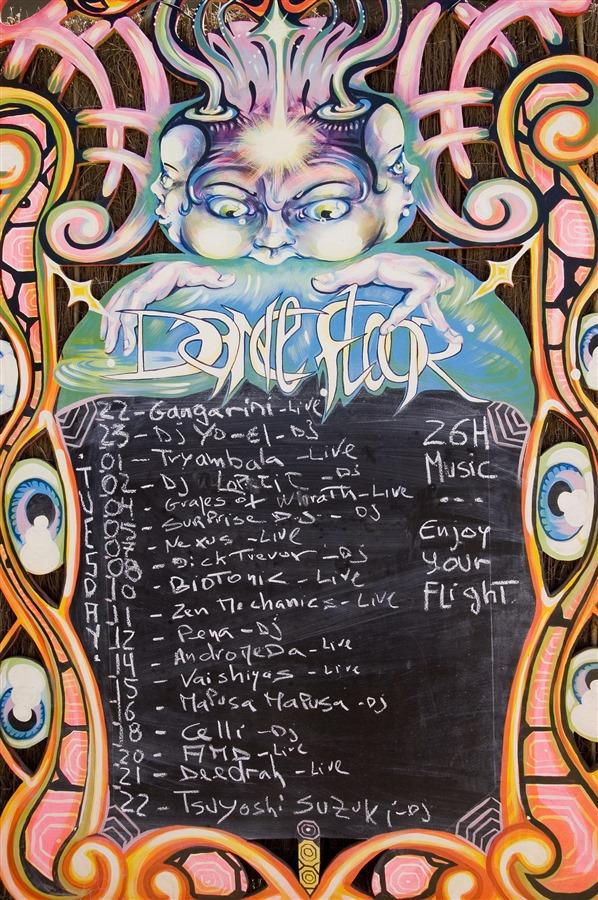 Dance Floor
22 - Gangarini - Live
23 - Dj Yo-El - Dj
01 - Tryambala - Live
02 - DJ - Dj
04 - Grapes of Whrath - Live
05 - Surprise DJ - DJ
07 - Nexus - Live
08 - Dick Trevor - Dj
10 - BIOTONIC - Live
11 - Zen Mechanics - Live
12 - Pena - DJ
14 - AndromeDa - Live
15 - Vaishiyas - Live
16 - Mapusa Mapusa - Dj
18 - Celli - Dj
20 - AMD - Live
21 - Deedrah - Live
22 - Tsuyoshi SUZUKI - Dj
TUESDAY
26H
Music
---
Enjoy
your
Flight